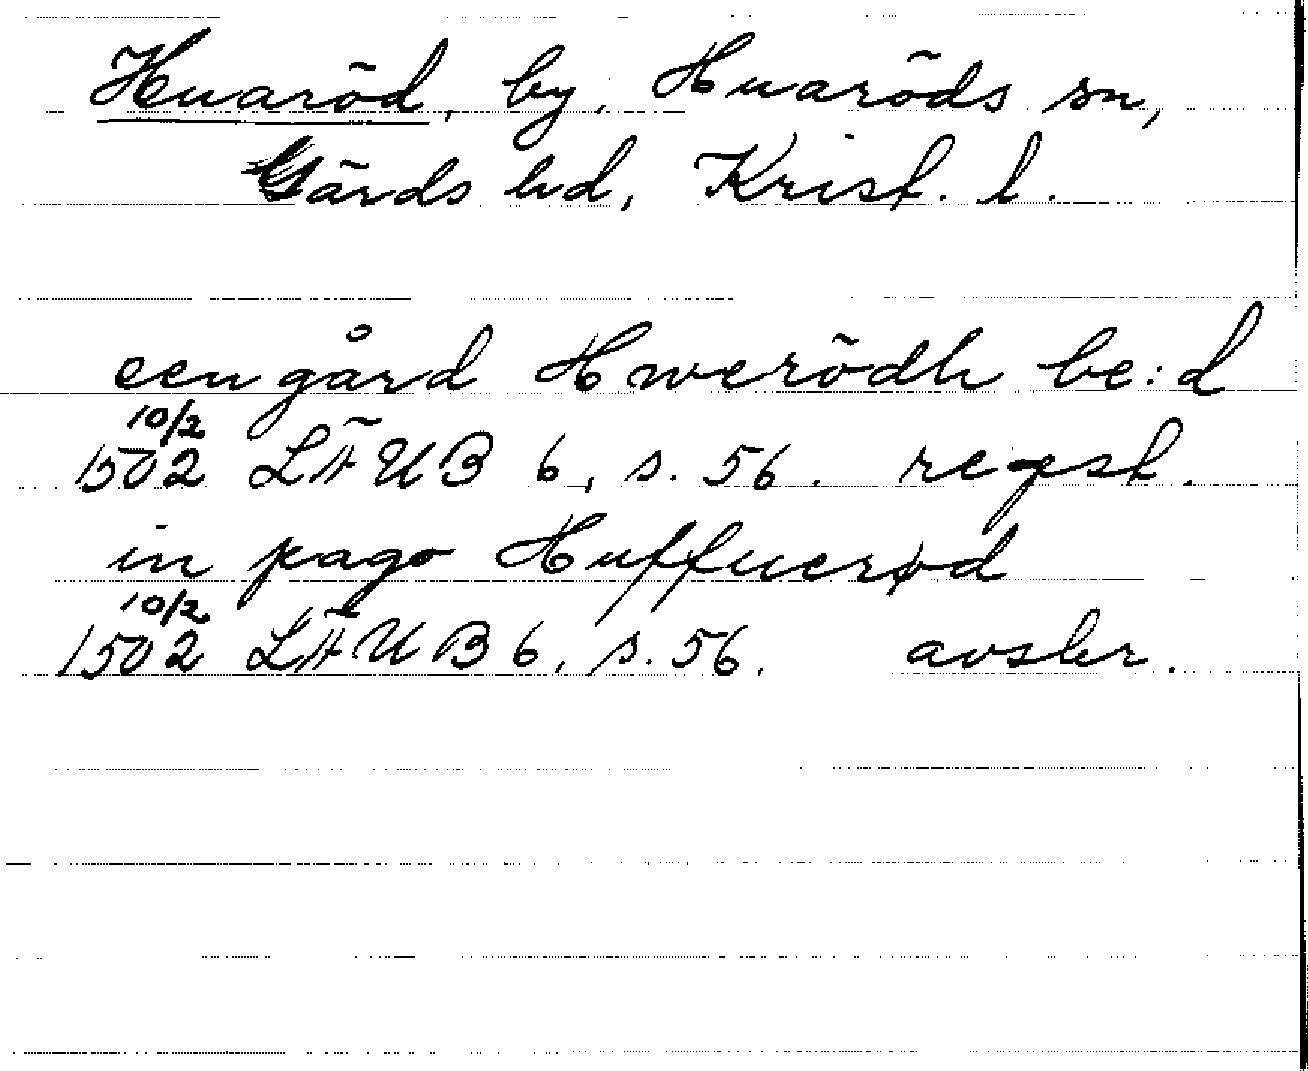 Huaröd, by, Huaröds sn,
Gärds hd, Krist. l.
een gård Hwerödh be:d
10/2
1502 LÄUB 6, s. 56. regest.
in pago Huffuerød
10/2
1502 LÄUB 6, s. 56. avskr.